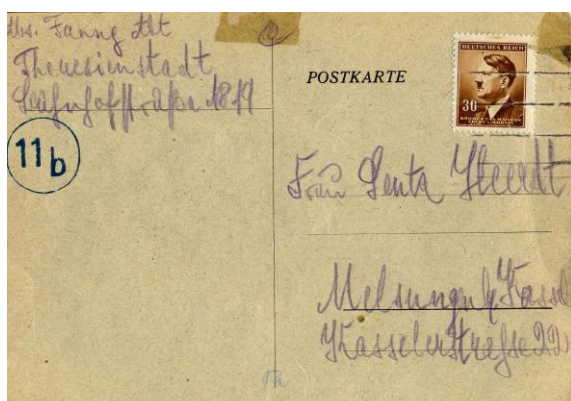 Abs. Fanny Alt
Theresienstadt
Bahnhofstraße
11b
POSTKARTE
DEUTSCHES REICH
30
BÖHMEN UND MÄHREN
Frau Senta
Melsungen b/Kassel
Kasselerstraße 22